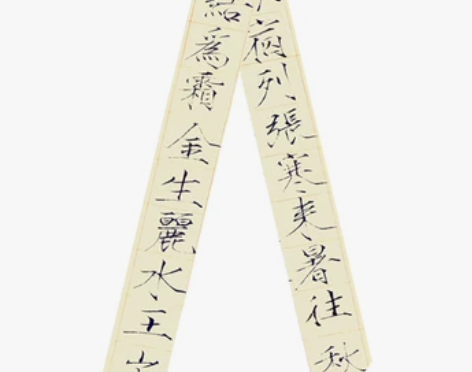 宿列張寒来暑往秋
結爲霜金生麗水王